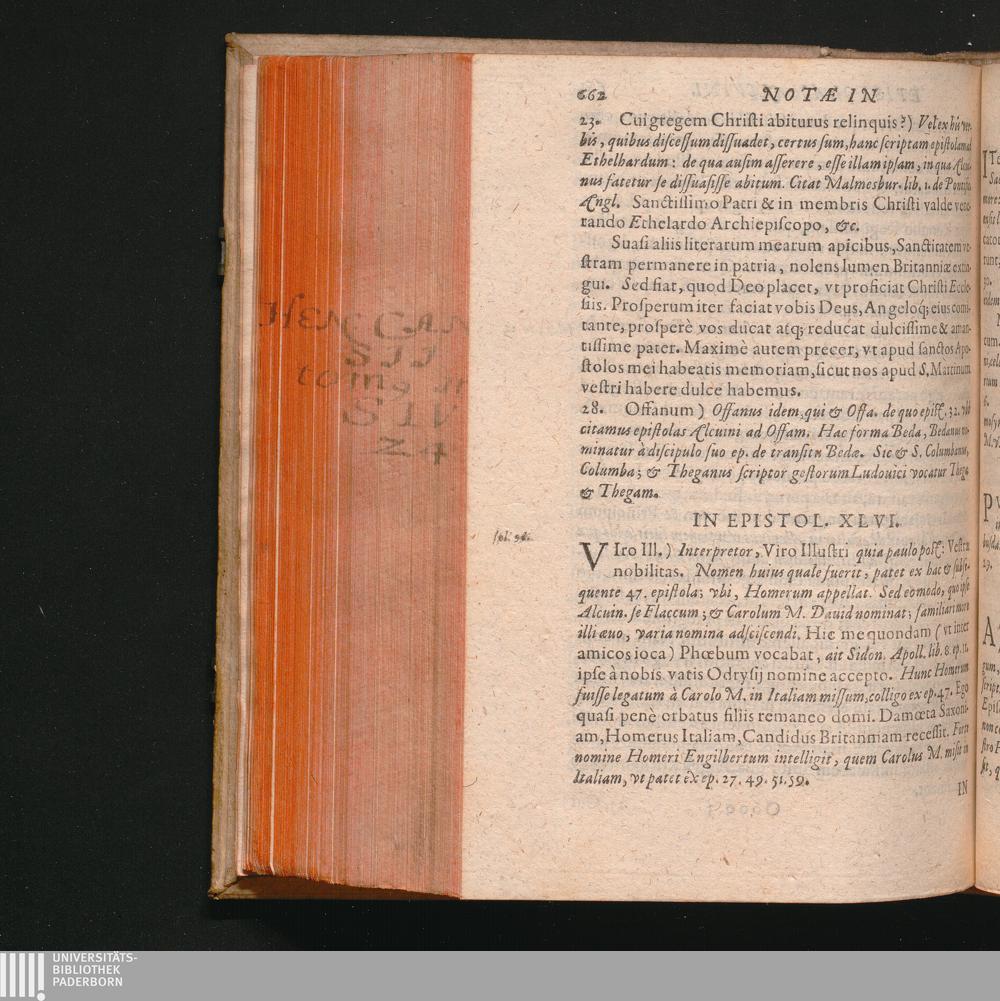 662 NOTÆ IN
23. Cui gregem Christi abiturus relinquis?) Vel ex his ver-
bis, quibus discessum dissuadet, certus sum, hanc scriptam epistolam ad
Ethelhardum: de qua ausim asserere, esse illam ipsam, in qua Alcui-
nus fatetur se dissuasisse abitum. Citat Malmesbur. lib. 1. de Pontific.
Angl. Sanctissimo Patri & in membris Christi valde vene-
rando Ethelardo Archiepiscopo, &c.
Suasi aliis literarum mearum apicibus, Sanctitatem ve-
stram permanere in patria, nolens lumen Britanniæ extin-
gui. Sed fiat, quod Deo placet, vt proficiat Christi Eccle-
siis. Prosperum iter faciat vobis Deus, Angeloq́; eius comi-
tante, prosperè vos ducat atq́; reducat dulcissime & aman-
tissime pater. Maximè autem precer, vt apud sanctos Apo-
stolos mei habeatis memoriam, sicut nos apud S. Martinum
vestri habere dulce habemus.
28. Offanum) Offanus idem, qui & Offa. de quo epist. 32. vbi
citamus epistolas Alcuini ad Offam. Hac forma Beda, Bedanus no-
minatur à discipulo suo ep. de transitu Bedæ. Sic & S. Columbanus,
Columba; & Theganus scriptor gestorum Ludouici vocatur Thega
& Thegam.
IN EPISTOL. XLVI.
VIro Ill.) Interpretor, Viro Illustri quia paulo post: Vestra
nobilitas. Nomen huius quale fuerit, patet ex hac & subse-
quente 47. epistola; vbi, Homerum appellat. Sed eomodo, quo ipse
Alcuin. se Flaccum; & Carolum M. Dauid nominat; familiari more
illi æuo, varia nomina adsciscendi. Hic me quondam (vt inter
amicos ioca) Phœbum vocabat, ait Sidon. Apoll. lib. 8. ep. 11.
ipse à nobis vatis Odrysij nomine accepto. Hunc Homerum
fuisse legatum à Carolo M. in Italiam missum, colligo ex ep. 47. Ego
quasi penè orbatus filiis remaneo domi. Damœta Saxoni-
am, Homerus Italiam, Candidus Britanniam recessit. Forte
nomine Homeri Engilbertum intelligit, quem Carolus M. misit in
Italiam, vt patet ex ep. 27. 49. 51. 59.
IN
HENR CAN
SII
tom9
SIV
24
UNIVERSITÄTS-
BIBLIOTHEK
PADERBORN